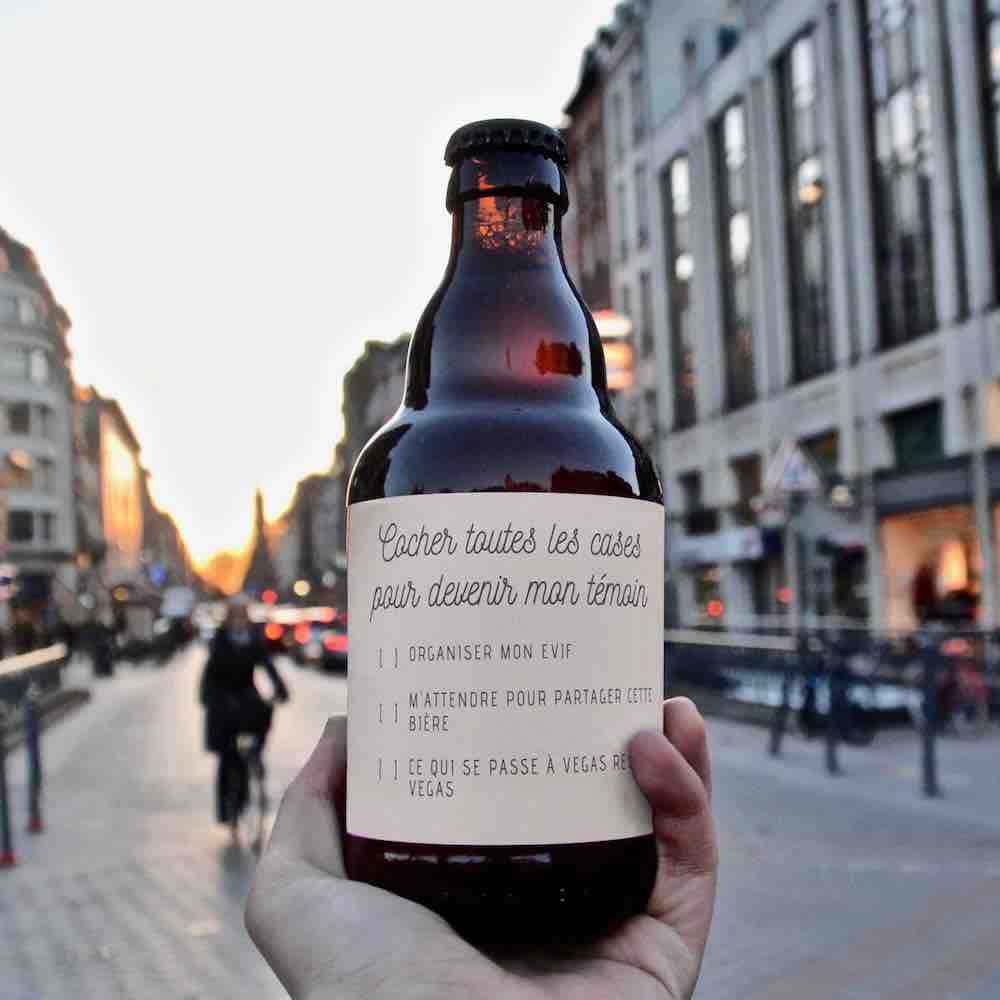 Cocher toutes les cases
pour devenir mon témoin
[ ] ORGANISER MON EVJF
[ ] M'ATTENDRE POUR PARTAGER CETTE
BIÈRE
[ ] CE QUI SE PASSE À VEGAS
VEGAS